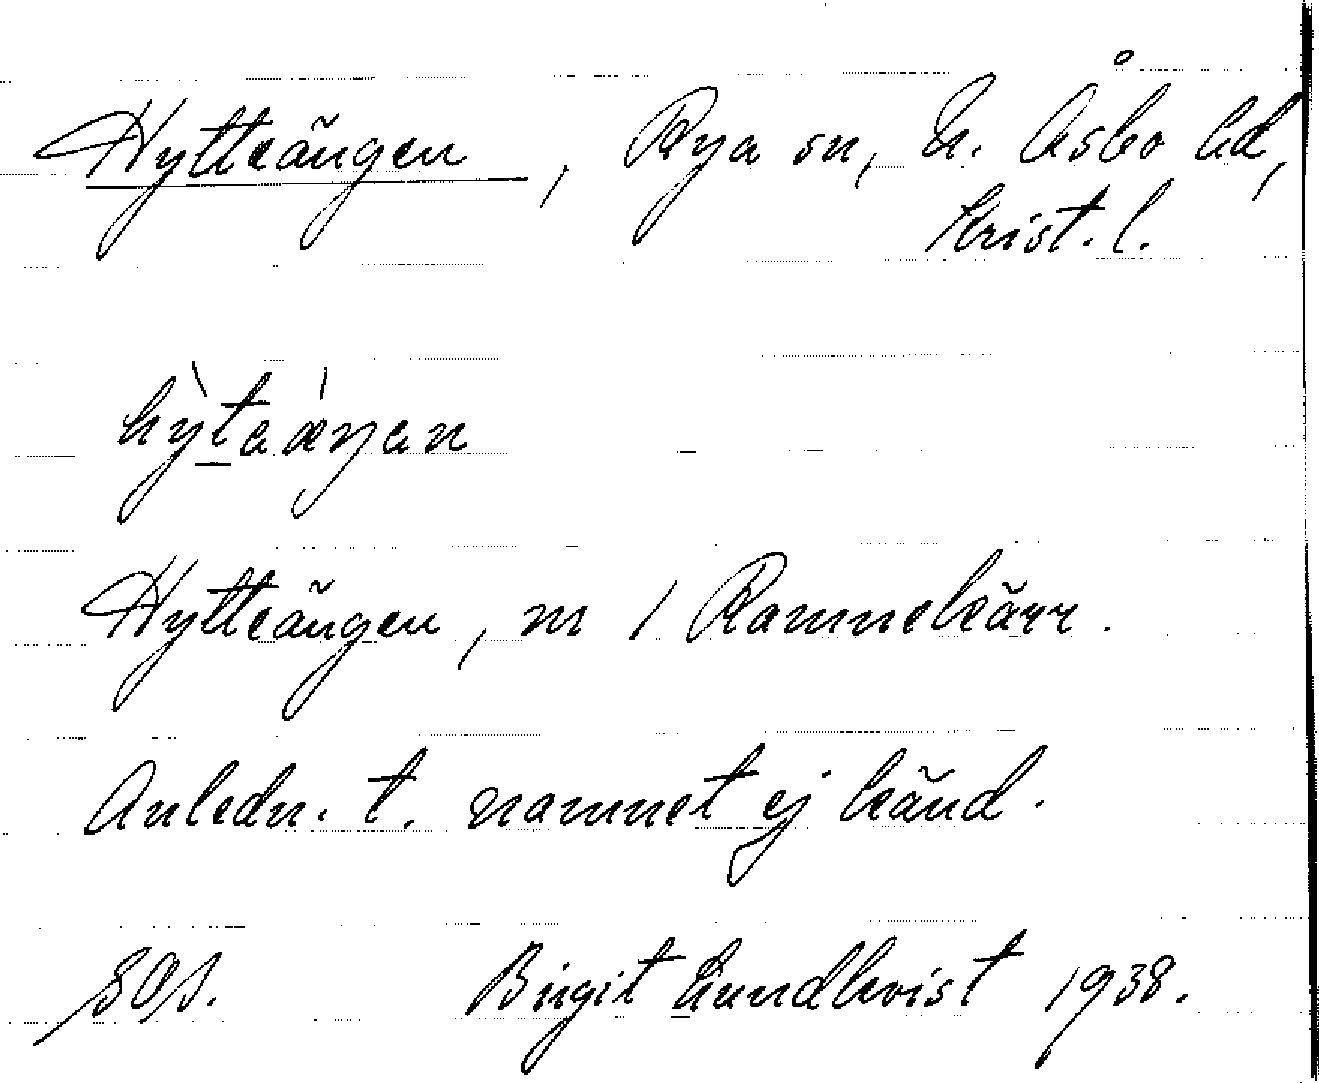 Hytteängen, Rya sn, N. Åsbo hd,
Krist. l.
hỳteǽŋen
Hytteängen, m / Ramnekärr.
Anledn. t. namnet ej känd.
Birgit Lundkvist 1938.